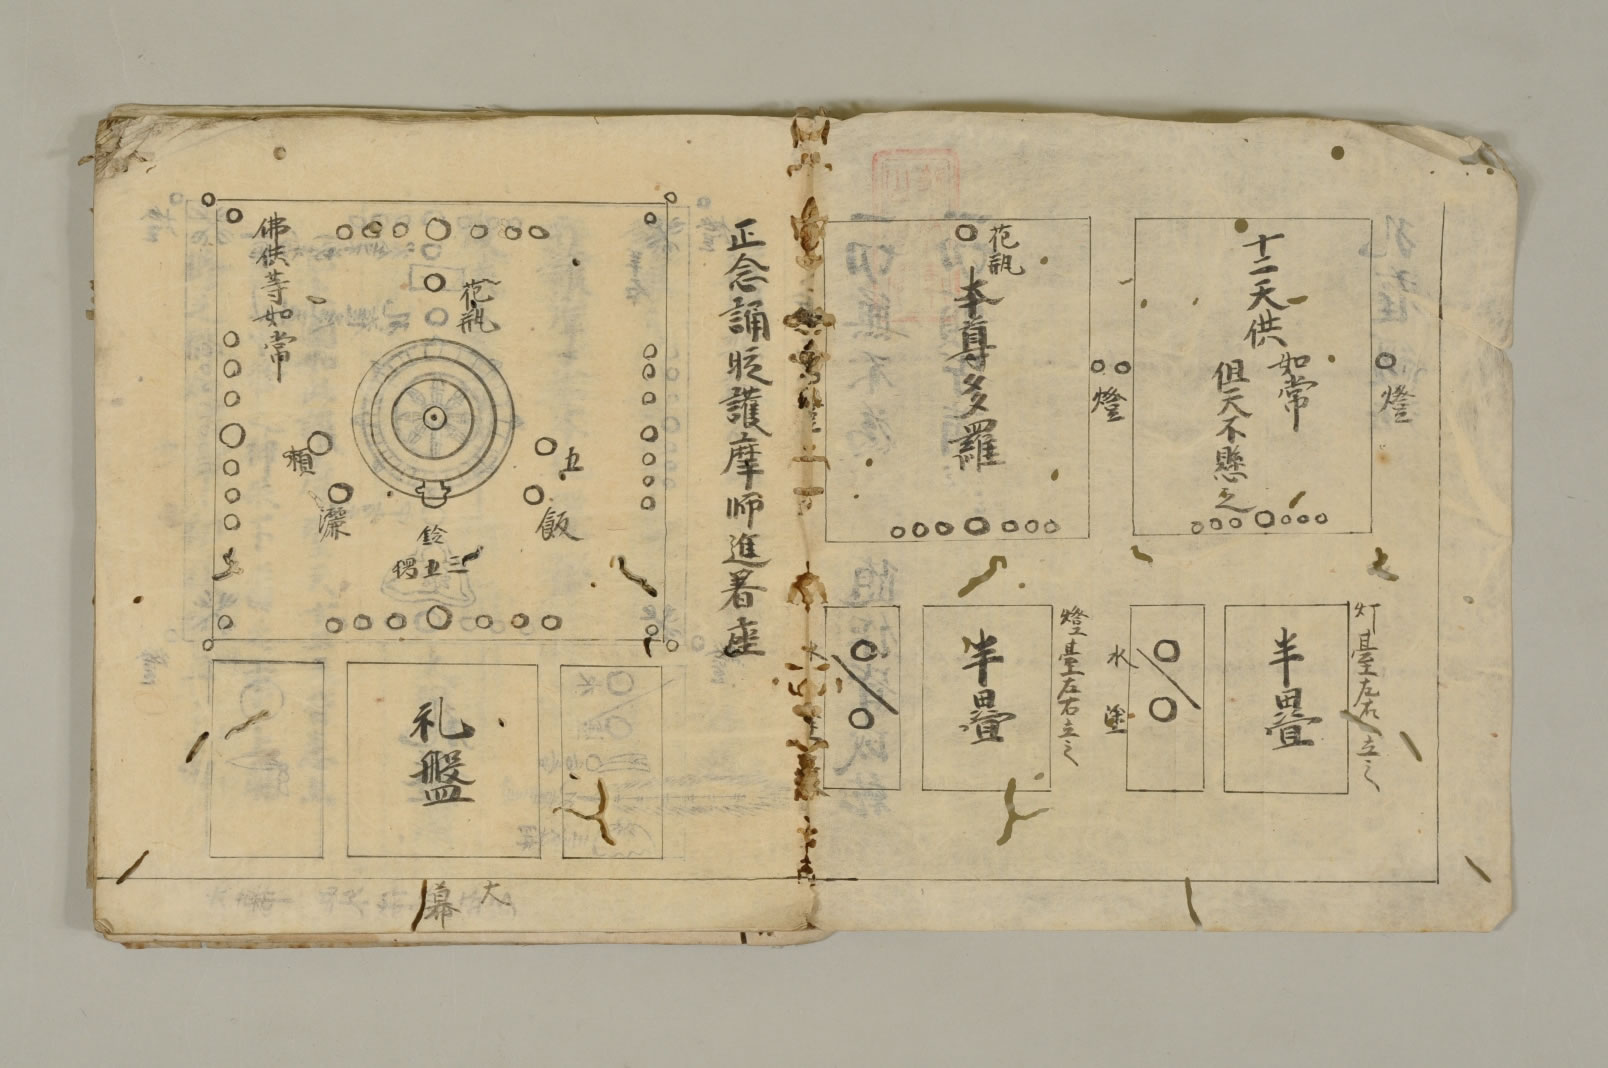 燈
十二天供
如常
但天不懸之
燈
花瓶
本尊多羅
灯臺左右立之
半疊
水
塗
燈臺左右立之
半疊
水
正念誦時護摩師進著座
花瓶
佛供等如常
五
飯
灑
鈴
三五
礼盤
大幕